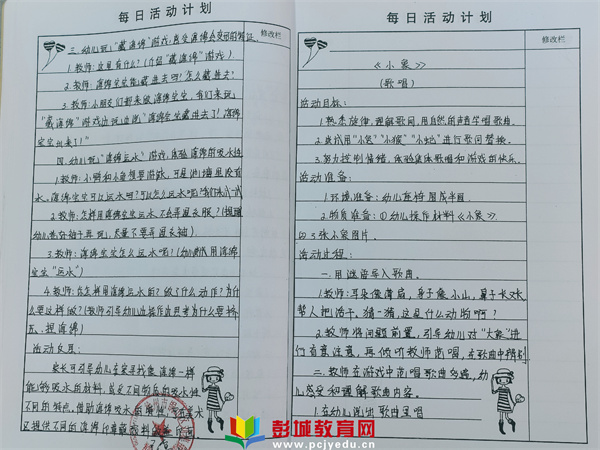 每日活动计划
修改栏
三、幼儿玩"藏海绵"游戏,感受海绵会变形的特征。
1.教师:这里有什么?(介绍"藏海绵"游戏)
2.教师:海绵宝宝能藏进去吗?怎么藏进去?
3.教师:小朋友们都来做海绵宝宝,我们来玩
"藏海绵"游戏
"海绵宝宝藏进去了!海绵
宝宝出来了!"
四、幼儿玩"海绵运水"游戏,体验海绵的吸水性
1.教师:小鸭和小鱼想要游泳,可是池塘里没有
水,海绵宝宝可以运水吗?可以怎么运水呢?我们来试一试
2.教师:怎样用海绵宝宝运水,不会弄湿衣服?(提醒
幼儿卷好袖子再玩,尽量不要弄湿衣袖)
3.教师:海绵宝宝怎么运水呢?(幼儿尝试用海绵
宝宝"运水")
4.教师:你怎样用海绵运水的?做了什么动作?为什
么要这样做?(教师引导幼儿边操作边思考为什么要挤
五、捏海绵)
活动反思:
家长可引导幼儿在家寻找像海绵一样
能够吸水的材料,
不同的特点,借助海绵吸水的特性,
又提供不同的海绵印章
每日活动计划
修改栏
《小象》
(歌唱)
活动目标:
1.熟悉旋律,理解歌词,用自然的声音学唱歌曲。
2.尝试用"小兔""小猴""小蛇"进行歌词替换。
3.努力控制情绪,体验集体歌唱和游戏的快乐。
活动准备:
1.环境准备:幼儿座椅摆成半圆。
2.物质准备:①幼儿操作材料《小象》
②3张小象图片。
活动过程:
一、用谜语导入歌曲。
1.教师:耳朵像蒲扇,身子像小山,鼻子长又长
帮人把活干,猜一猜,这是什么动物啊?
2.教师将问题前置,引导幼儿对"大象"进
行有意注意,再倾听教师范唱,在歌曲中猜到
二、教师在游戏中范唱歌曲多遍,幼
儿感受和理解歌曲内容。
1.与幼儿说出歌曲里唱
彭城教育网
www.pcjyedu.cn